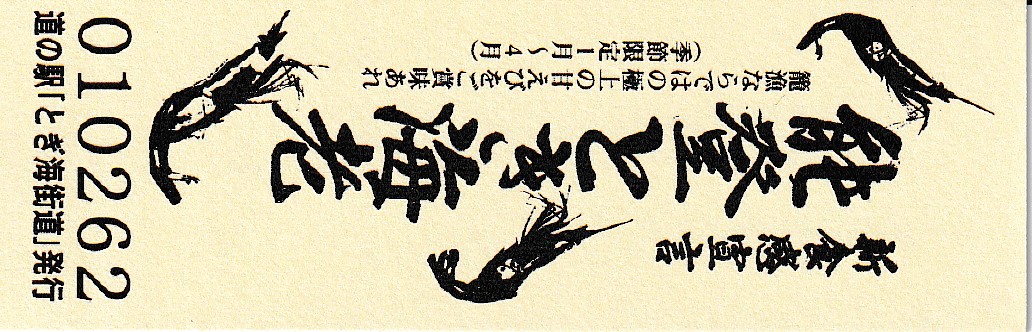 新食感宣言
能登とぎ海老
籠漁ならではの極上の甘えびをご賞味あれ
(季節限定1月～4月)
010262
道の駅「とぎ海街道」発行